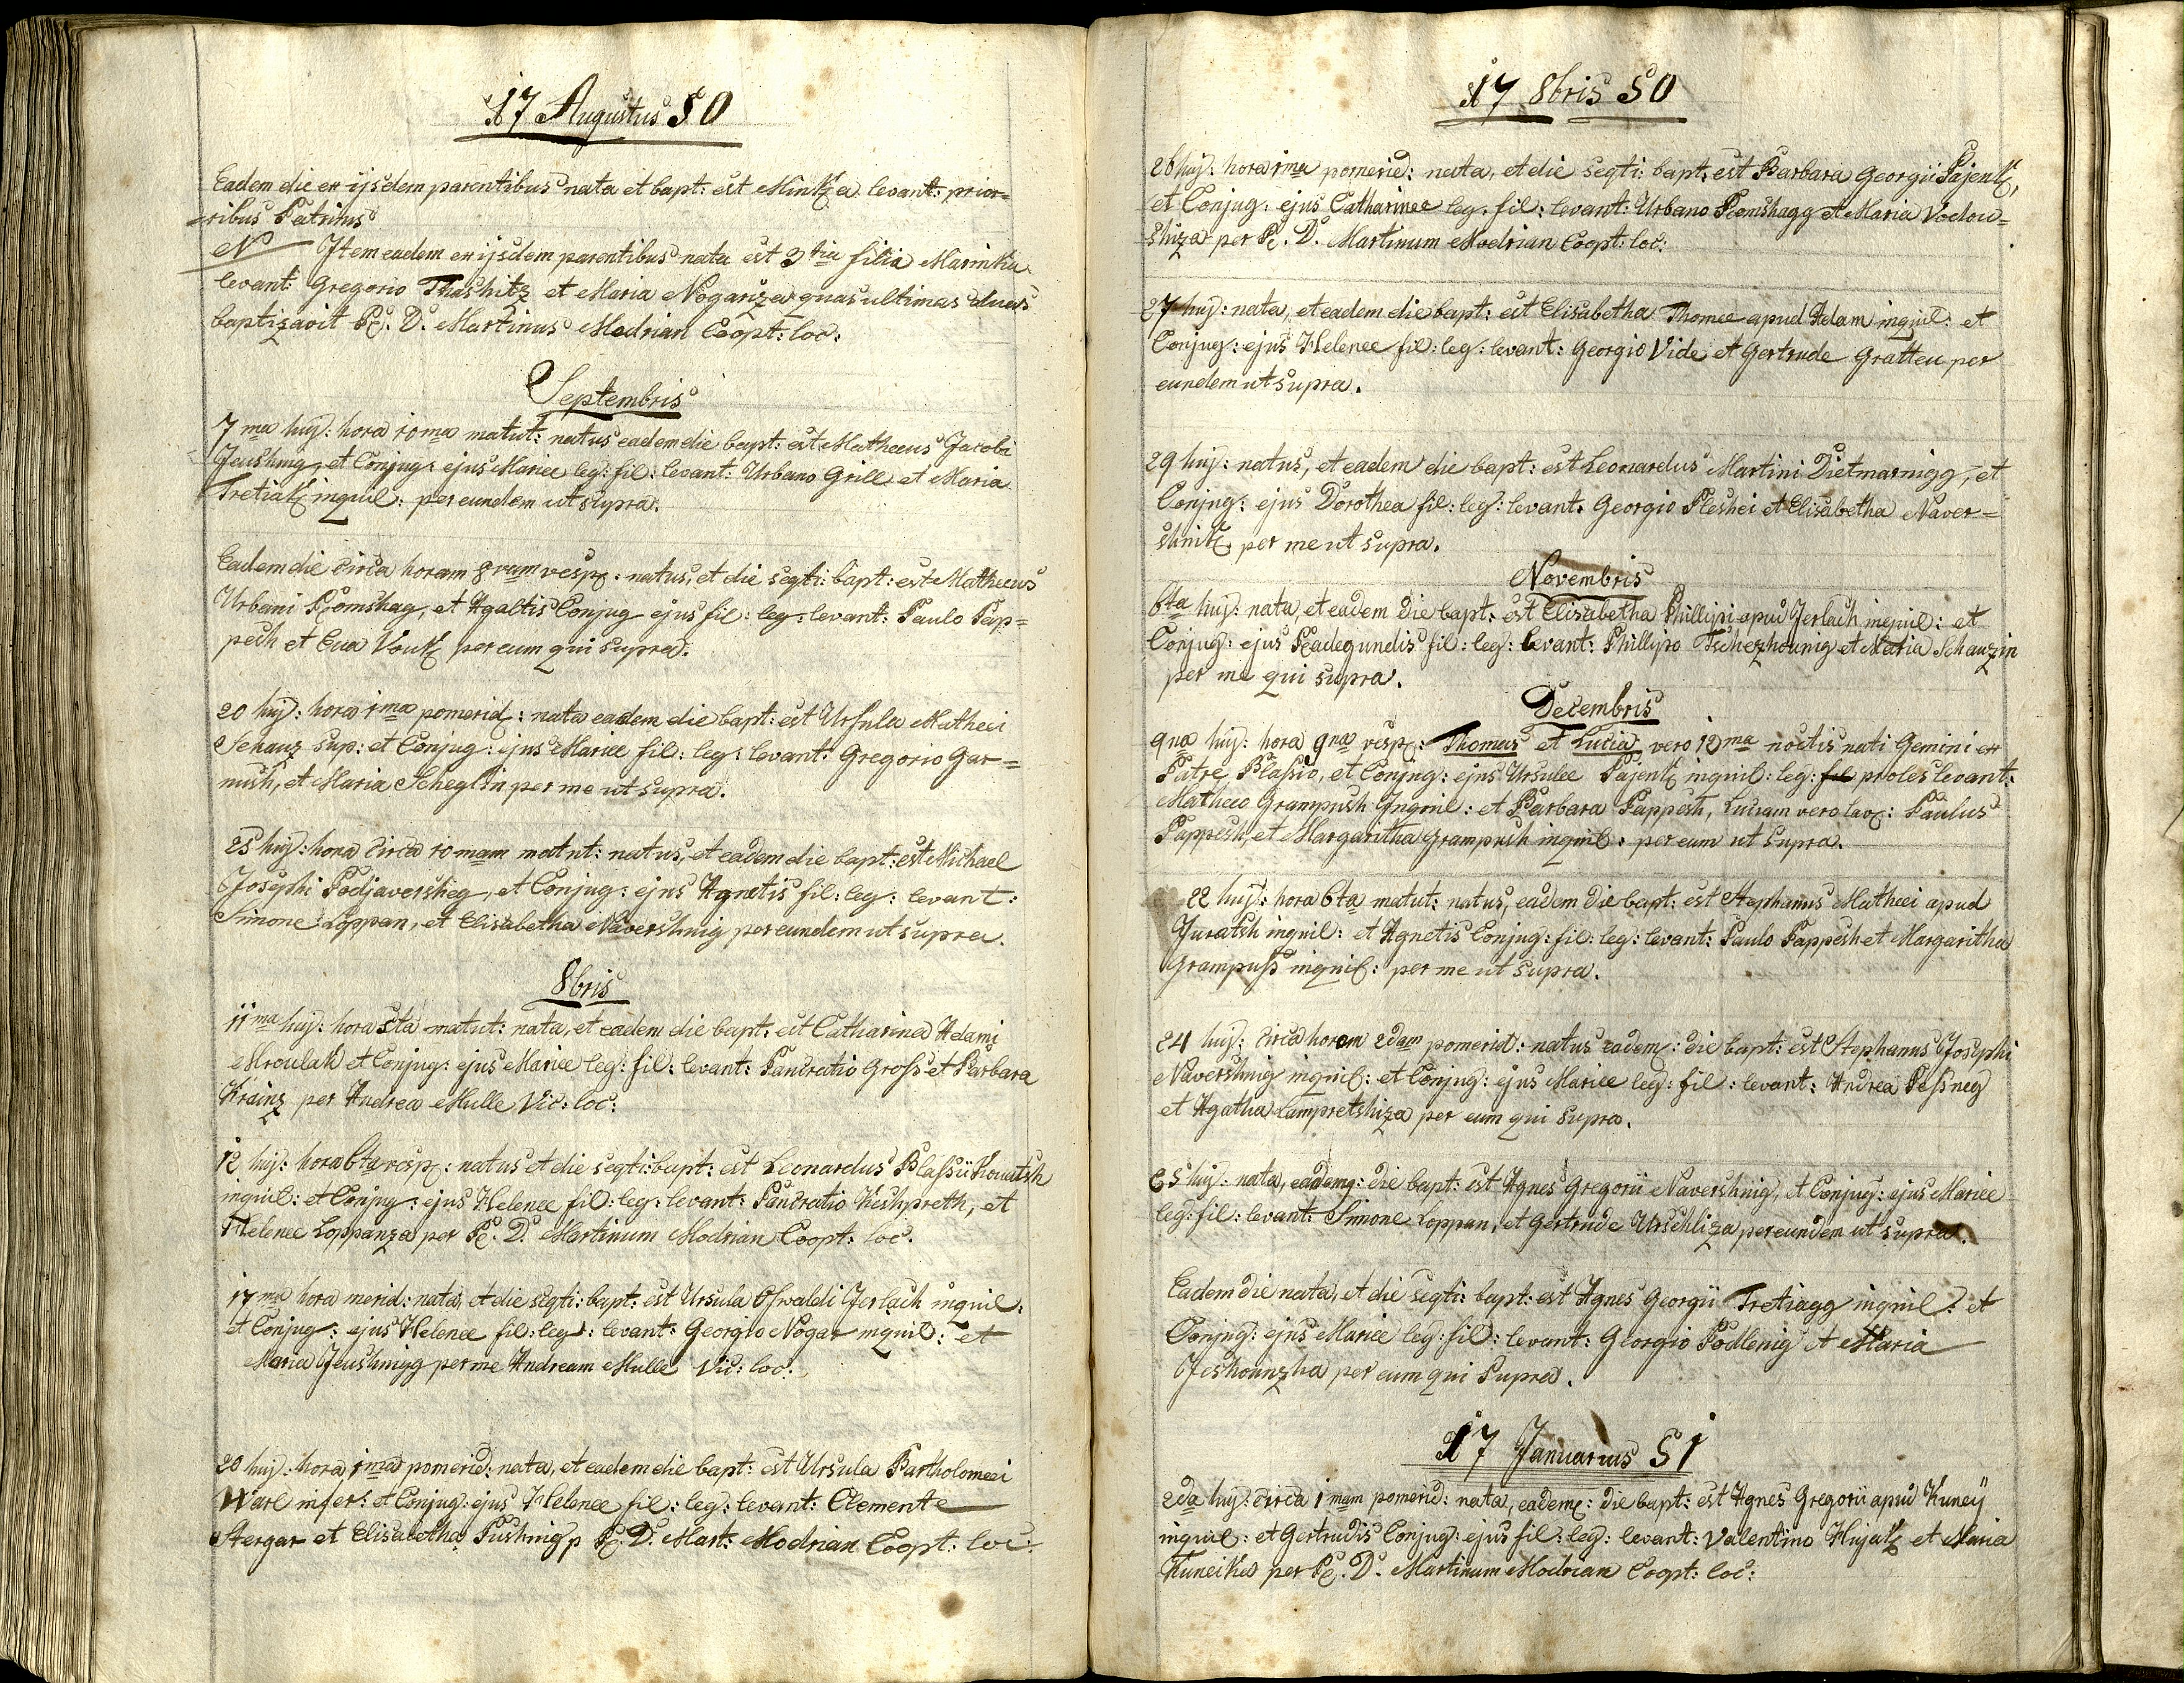 17 Augustus 50
Eadem die ex ijsdem parentibus nata et bapt: est Minka levant: prio-
ribus Patrinis
N Item eadem ex ijsdem parentibus nata est 3tia filia Marinka
levant: Gregorio Thashitz et Maria Nogariza quas ultimas duas
baptizavit R. D. Martinus Modrian Coopt: loc:
Septembris
7ma huj: hora 10ma matut: natus eadem die bapt: est Mathaeus Jacobi
Jeushnig, et Conjug: ejus Mariae leg: fil: levant: Urbano Grill et Maria
Tretiak inquil: per eundem ut supra.
Eadem die circa horam 8vam vesp: natus, et die seqti: bapt: est Mathaeus
Urbani Romshag, et Agaltis Conjug ejus fil: leg: levant: Paulo Pap=
pesh et Eva Vouk per eum qui supra.
20 huj: hora 1ma pomerid: nata eadem die bapt: est Ursula Mathaei
Schauz sup: et Conjug: ejus Mariae fil: leg: levant: Gregorio Gar=
nush, et Maria Scheglin per me ut supra.
25 huj: hora circa 10mam matut: natus, et eadem die bapt: est Michael
Josephi Podjaversheg, et Conjug: ejus Agnetis fil: leg: levant:
Simone Loppan, et Elisabetha Navershnig per eundem ut supra.
8bris
11ma huj: hora 5ta matut: nata, et eadem die bapt: est Catharina Adami
Mroulak et Conjug: ejus Mariae leg: fil: levant: Pancratio Gross et Barbara
Krainz per Andrea Mulle Vic: loc:
12 huj: hora 6ta vesp: natus et die seqti: bapt: est Leonardus Blasii Kouatsh
inquil: et Conjug: ejus Helenae fil: leg: levant: Pancratio Keshpreth, et
Helenae Loppanza per R. D. Martinum Modrian Coopt: loc.
17ma hora merid: nata, et die seqti: bapt: est Ursula Oswaldi Jerlach inquil:
et Conjug: ejus Helenae fil: leg: levant: Georgio Nogar inquil: et
Maria Jeushnigg per me Andream Mulle Vic: loc:
20 huj: hora 1ma pomerid: nata, et eadem die bapt: est Ursula Bartholomaei
Warl infer: et Conjug: ejus Helenae fil: leg: levant: Clemente
Stergar et Elisabetha Pushnig p R. D. Mart: Modrian Coopt: loc:
17 8bris 50
26 huj: hora 1ma pomerid: nata, et die seqti: bapt: est Barbara Georgii Pajenk,
et Conjug: ejus Catharinae leg: fil: levant: Urbano Romshagg et Maria Vodou=
shiza per R. D. Martinum Modrian Coopt: loc:
27 huj: nata, et eadem die bapt: est Elisabetha Thomae apud Adam inquil: et
Conjug: ejus Helenae fil: leg: levant: Georgio Vide et Gertrude Gratteu per
eundem ut supra.
29 huj: natus, et eadem die bapt: est Leonardus Martini Dietmarnigg, et
Conjug: ejus Dorothea fil: leg: levant: Georgio Pleshei et Elisabetha Naver=
shnik per me ut supra.
Novembris
6ta huj: nata, et eadem die bapt: est Elisabetha Phillipi apud Jerlach inquil: et
Conjug: ejus Radegundis fil: leg: levant: Phillipo Tschezhounig et Maria Schauzin
per me qui supra.
Decembris
9na huj: hora 9na vesp: Thomas et Lucia vero 12ma noctis nati Gemini ex
Patre Blasio, et Conjug: ejus Ursulae Pajenk inquil: leg: fil proles levant:
Mathaeo Grampush Inquil: et Barbara Pappesh, Luciam vero lav: Paulus
Pappesh, et Margaritha Grampush inquil: per eum ut supra.
22 huj: hora 6ta matut: natus, eadem die bapt: est Stephanus Mathaei apud
Juratsh inquil: et Agnetis Conjug: fil: leg: levant: Paulo Pappesh et Margaritha
Grampuss inquil: per me ut supra.
24 huj: circa horam 2dam pomerid: natus eademq: die bapt: est Stephanus Josephi
Navershnig inquil: et Conjug: ejus Mariae leg: fil: levant: Andrea Possneg
et Agatha Lampretshiza per eum qui supra.
25 huj: nata, eademq: die bapt: est Agnes Gregorii Navershnig, et Conjug: ejus Mariae
leg: fil: levant: Simone Loppan, et Gertrude Urschliza per eundem ut supra.
Eadem die nata, et die seqti: bapt: est Agnes Georgii Tretiagg inquil: et
Conjug: ejus Mariae leg: fil: levant: Georgio Podlenig et Maria
Jeshounzha per eum qui supra.
17 Januarius 51
2da huj: circa 1mam pomerid: nata, eademq: die bapt: est Agnes Gregorii apud Kuneij
inquil: et Gertrudis Conjug: ejus fil: leg: levant: Valentino Hujak et Maria
Kuneika per R. D. Martinum Modrian Coopt: loc: